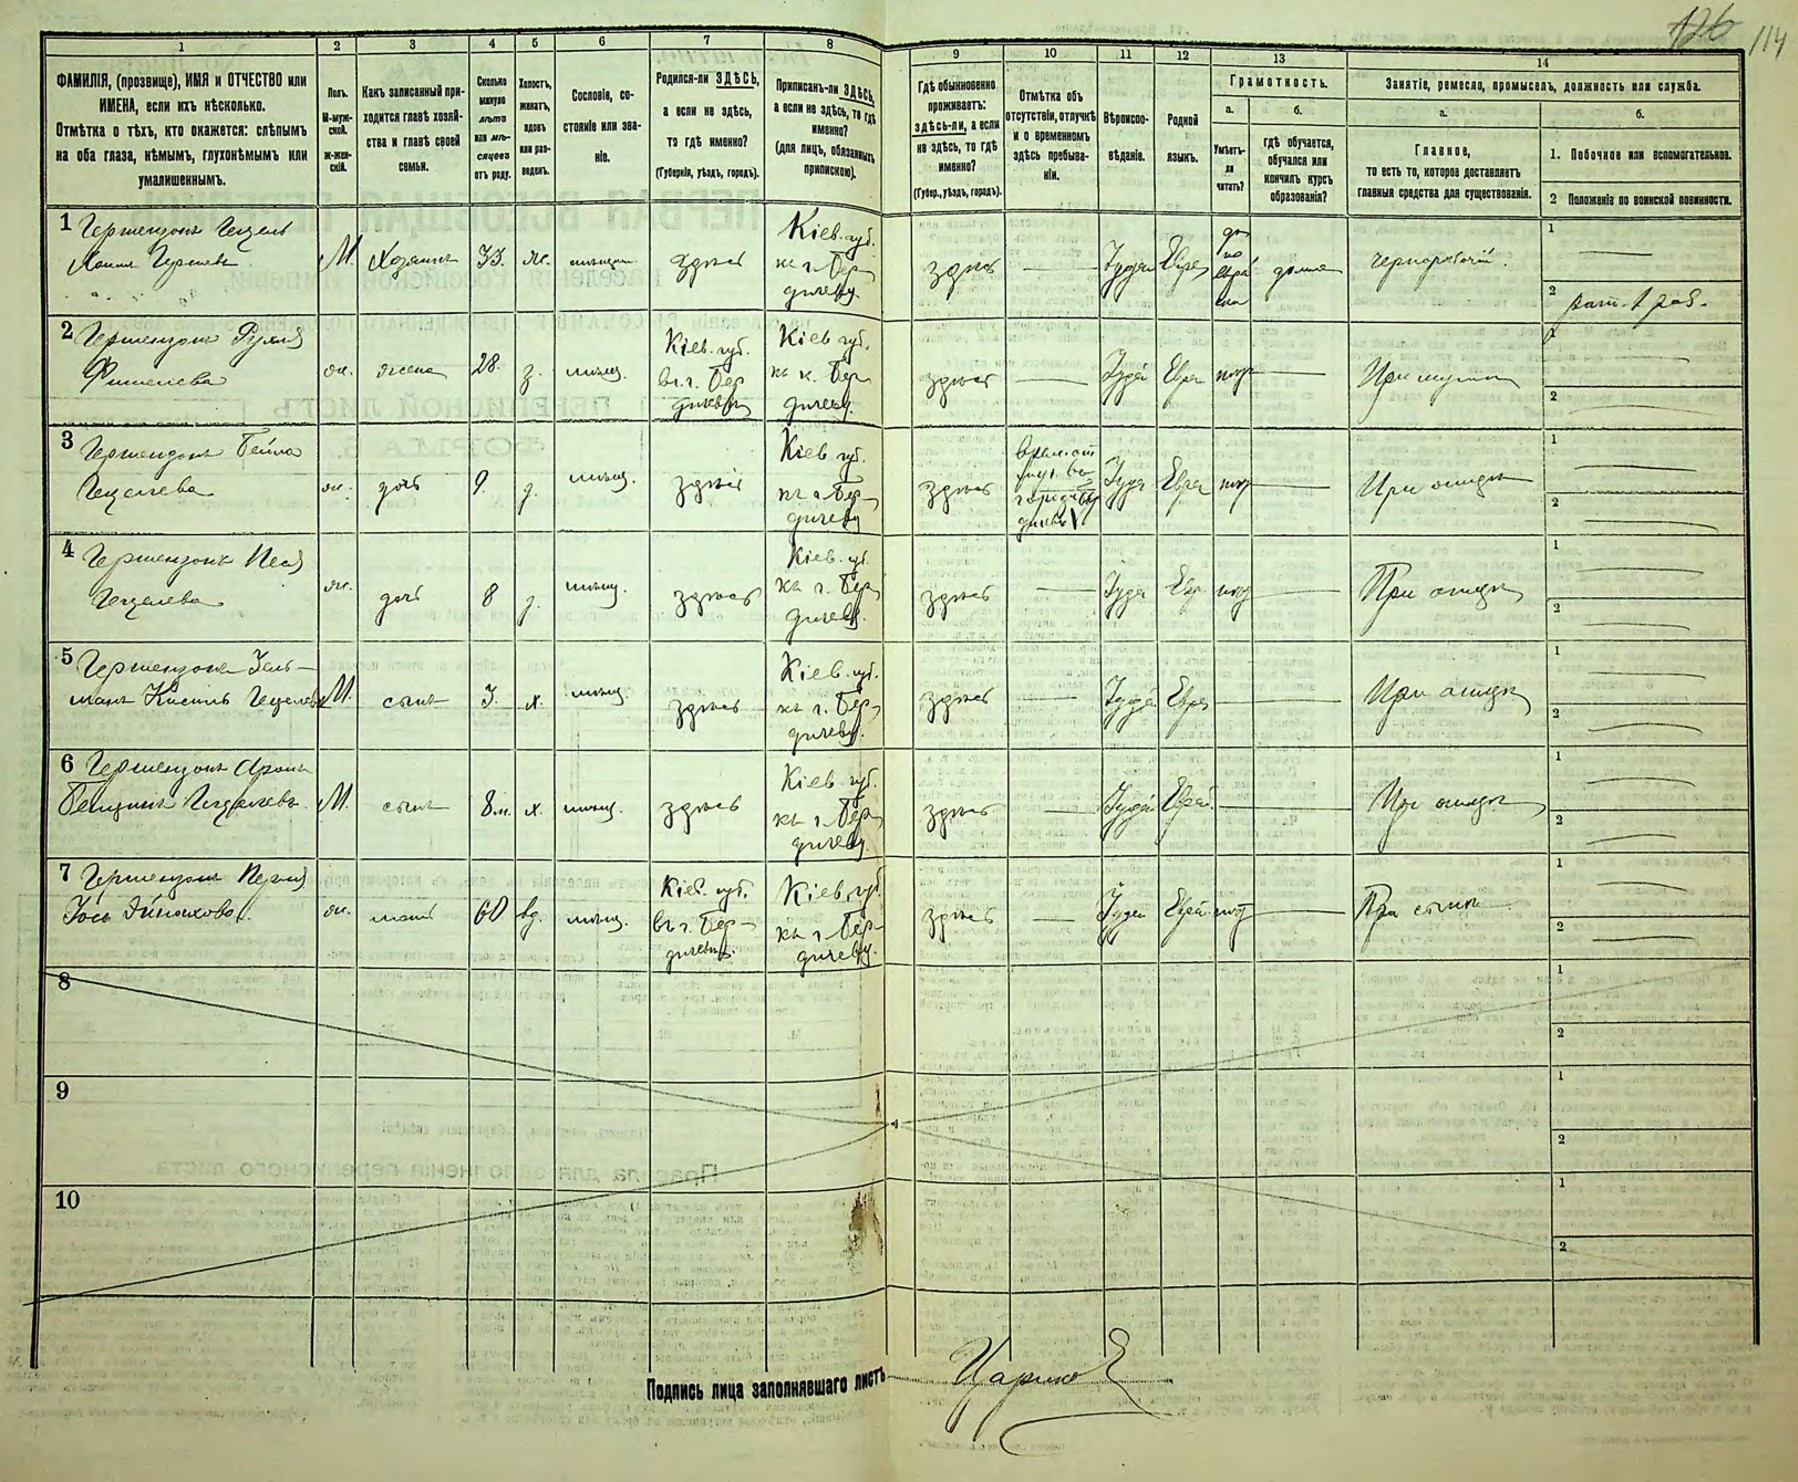 126
114
1
2
3
4
5
6
7
8
9
10
11
12
13
14
ФАМИЛІЯ, (прозвище), ИМЯ и ОТЧЕСТВО или
ИМЕНА, если ихъ нѣсколько.
Отмѣтка о тѣхъ, кто окажется: слѣпымъ
на оба глаза, нѣмымъ, глухонѣмымъ или
умалишеннымъ.
Полъ.
М-муж-
ской.
Ж-жен-
скій.
Какъ записанный при-
ходится главѣ хозяй-
ства и главѣ своей
семьи.
Сколько
минуло
лѣтъ
или мѣ-
сяцевъ
отъ роду.
Холостъ,
женатъ,
вдовъ
или раз-
веденъ.
Сословіе, со-
стояніе или зва-
ніе.
Родился-ли ЗДѢСЬ,
а если не здѣсь,
то гдѣ именно?
(Губернія, уѣздъ, городъ).
Приписанъ-ли ЗДѢСЬ,
а если не здѣсь, то гдѣ
именно?
(для лицъ, обязанныхъ
припискою).
Гдѣ обыкновенно
проживаетъ:
здѣсь-ли, а если
не здѣсь, то гдѣ
именно?
(Губер., уѣздъ, городъ).
Отмѣтка объ
отсутствіи, отлучкѣ
и о временномъ
здѣсь пребыва-
ніи.
Вѣроиспо-
вѣданіе.
Родной
языкъ.
Грамотность.
а.
б.
Умѣетъ-
ли
читать?
гдѣ обучается,
обучался или
кончилъ курсъ
образованія?
Занятіе, ремесло, промыселъ, должность или служба.
а.
б.
Главное,
то есть то, которое доставляетъ
главныя средства для существованія.
1. Побочное или вспомогательное.
2 Положеніе по воинской повинности.
1 Гершензонъ Гецель
М. Хозяинъ 33. ж. здѣсь
Кіев. губ.
къ г. Бер
дичеву.
здѣсь
Іудей
Еврей
да
по
дома
чернорабочій.
1
2
рат. 1 раз.
2 Гершензонъ Рухля
Фишелева
ж. жена 28. з. мѣщ.
Кіев. губ.
въ г. Бер
дичевѣ
Кіев губ.
къ г. Бер
дичеву.
здѣсь
Іудей
Евре
При мужѣ
1
2
3 Гершензонъ Бейла
Гецелева
ж. дочь 9. д. мѣщ. здѣсь
Кіев губ.
къ г. Бер
дичеву
здѣсь
Іуде
Евре
При отцѣ
1
2
4 Гершензонъ Песя
Гецелева
ж. дочь 8 д. мѣщ. здѣсь
Кіев. губ.
къ г. Бер
дичеву.
здѣсь
Іуде
Евр.
При отцѣ
1
2
5 Гершензонъ Зель-
манъ Кисиль Гецелевъ
М. сынъ 3. х. мѣщ. здѣсь
Кіев. губ.
къ г. Бер
дичеву.
здѣсь
Іудей
Евре
При отцѣ
1
2
6 Гершензонъ Аронъ
Гецелевъ
М. сынъ 8 м. х. мѣщ. здѣсь
Кіев губ.
къ г. Бер
дичеву.
здѣсь
Іудей
Еврей
При отцѣ
1
2
7 Гершензонъ
ж. мать 60 вд. мѣщ.
Кіев. губ.
въ г. Бер-
дичевѣ.
Кіев. губ.
къ г. Бер-
дичеву.
здѣсь
Іудей
Еврей
При сынѣ
1
2
8
1
2
9
1
2
10
1
2
Подпись лица заполнявшаго листъ